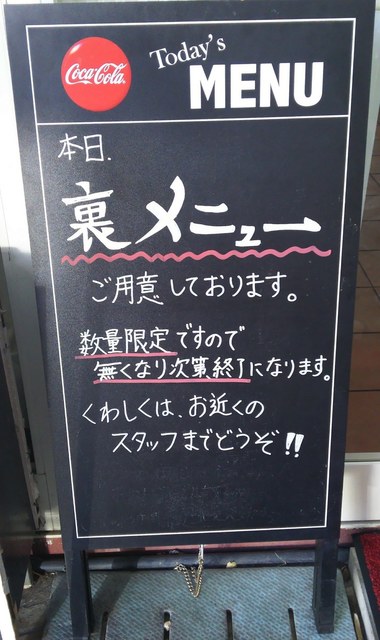 Coca-Cola
Today's
MENU
本日.
裏メニュー
ご用意しております。
数量限定ですので
無くなり次第終了になります。
くわしくは、お近くの
スタッフまでどうぞ!!